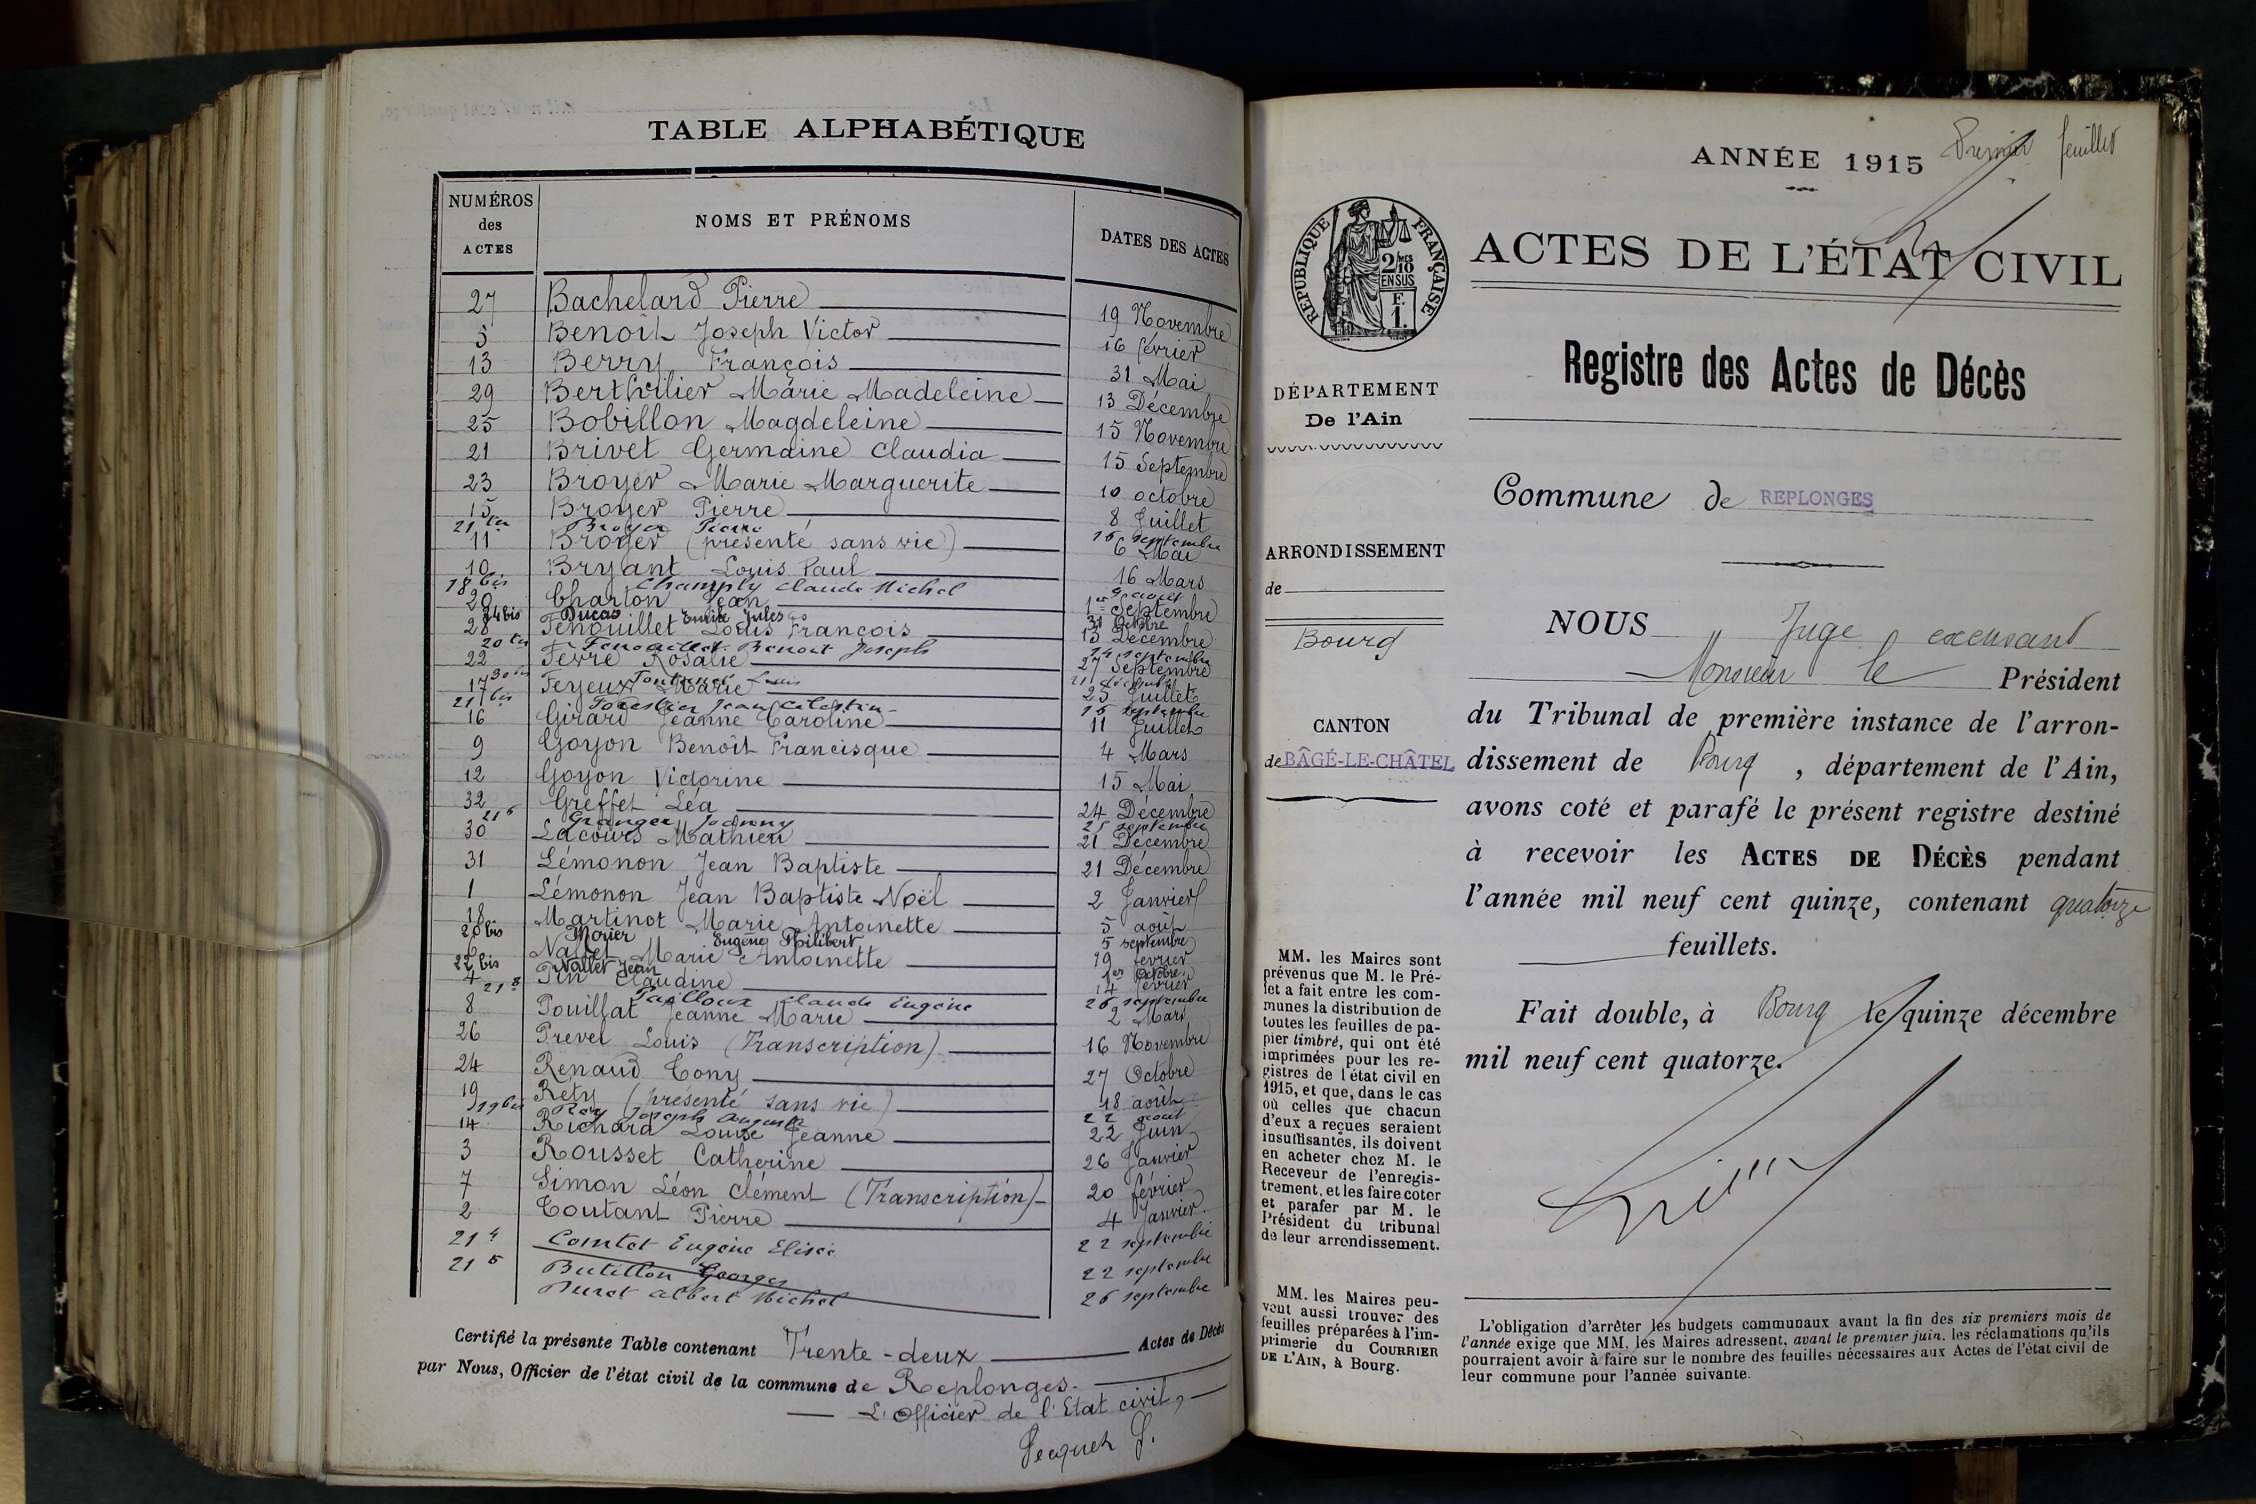 TABLE ALPHABÉTIQUE
NUMÉROS des ACTES NOMS ET PRÉNOMS DATES DES ACTES
27 Bachelard Pierre 19 Novembre
5 Benoît Joseph Victor 16 février
13 Berry François 31 Mai
29 Berthilier Marie Madeleine 13 Décembre
25 Bobillon Magdeleine 15 Novembre
21 Brivet Germaine Claudia 15 Septembre
23 Broyer Marie Marguerite 10 octobre
15 Broyer Pierre 8 Juillet
21 ter Broyer Pierre 16 septembre
11 Broyer (présenté sans vie) 6 Mai
10 Bryant Louis Paul 16 Mars
18 bis Champly Claude Michel 9 aout
20 Charton Jean 1er Septembre
24 bis Ducas Emile Jules 31 Octobre
28 Fenouillet Louis François 13 Décembre
20 ter Fenouillet Benoit Joseph 14 septembre
22 Fevre Rosalie 27 Septembre
30 bis Louis
17 Feyeux Marie 25 Juillet
21 bis Forestier Jean Célestin 15 septembre
16 Girard Jeanne Caroline 11 Juillet
9 Goyon Benoît Francisque 4 Mars
12 Goyon Victorine 15 Mai
32 Greffet Léa 24 Décembre
21 6 Granger Joanny 25 septembre
30 Lacours Mathieu 21 Décembre
31 Lémonon Jean Baptiste 21 Décembre
1 Lémonon Jean Baptiste Noël 2 Janvier
18 Martinot Marie Antoinette 5 août
20 bis Morier Eugène Philibert 5 septembre
6 Nallet Marie Antoinette 19 février
22 bis Nallet Jean 1er Octobre
4 Pin Claudine 14 février
21 8 Pailloux Claude Eugène 26 septembre
8 Pouillat Jeanne Marie 2 Mars
26 Prevel Louis (Transcription) 16 Novembre
24 Renaud Tony 27 Octobre
19 Réty (présenté sans vie) 18 août
19 bis Rey Joseph Auguste 22 aout
14 Richard Louise Jeanne 22 Juin
3 Rousset Catherine 26 Janvier
7 Simon Léon Clément (Transcription) 20 février
2 Toutant Pierre 4 Janvier
21 4 Comtet Eugène Elisée 22 septembre
21 5 Butillon Georges 22 septembre
Duret Albert Michel 26 septembre
Certifié la présente Table contenant Trente-deux Actes de Décès
par Nous, Officier de l'état civil de la commune de Replonges.
L'Officier de l'Etat civil,
Premier feuillet
ANNÉE 1915
ACTES DE L'ÉTAT CIVIL
Registre des Actes de Décès
RÉPUBLIQUE FRANÇAISE
2/10MES
EN SUS
F.
1.
DÉPARTEMENT
De l'Ain
Commune de REPLONGES
ARRONDISSEMENT
de
Bourg
CANTON
de BÂGÉ-LE-CHÂTEL
NOUS Juge excusant
Monsieur le Président
du Tribunal de première instance de l'arron-
dissement de Bourg, département de l'Ain,
avons coté et parafé le présent registre destiné
à recevoir les ACTES DE DÉCÈS pendant
l'année mil neuf cent quinze, contenant quatorze
feuillets.
Fait double, à Bourg le quinze décembre
mil neuf cent quatorze.
MM. les Maires sont
prévenus que M. le Pré-
fet a fait entre les com-
munes la distribution de
toutes les feuilles de pa-
pier timbré, qui ont été
imprimées pour les re-
gistres de l'état civil en
1915, et que, dans le cas
où celles que chacun
d'eux a reçues seraient
insuffisantes, ils doivent
en acheter chez M. le
Receveur de l'enregis-
trement, et les faire coter
et parafer par M. le
Président du tribunal
de leur arrondissement.
MM. les Maires peu-
vent aussi trouver des
feuilles préparées à l'im-
primerie du COURRIER
DE L'AIN, à Bourg.
L'obligation d'arrêter les budgets communaux avant la fin des six premiers mois de
l'année exige que MM. les Maires adressent, avant le premier juin, les réclamations qu'ils
pourraient avoir à faire sur le nombre des feuilles nécessaires aux Actes de l'état civil de
leur commune pour l'année suivante.